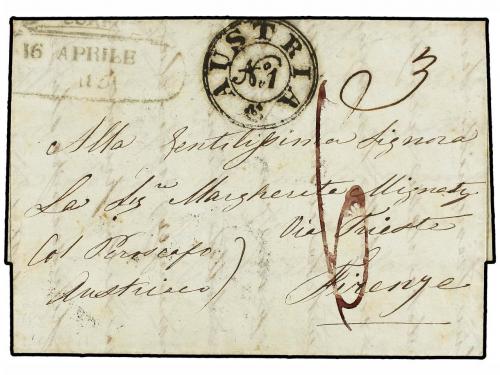 16 APRILE
AUSTRIA
No. 1
3
Alla Gentilissima Signora
La Sig.ra Margherita Mignaty
Via Trieste
Col Piroscafo
Austriaco)
Firenze